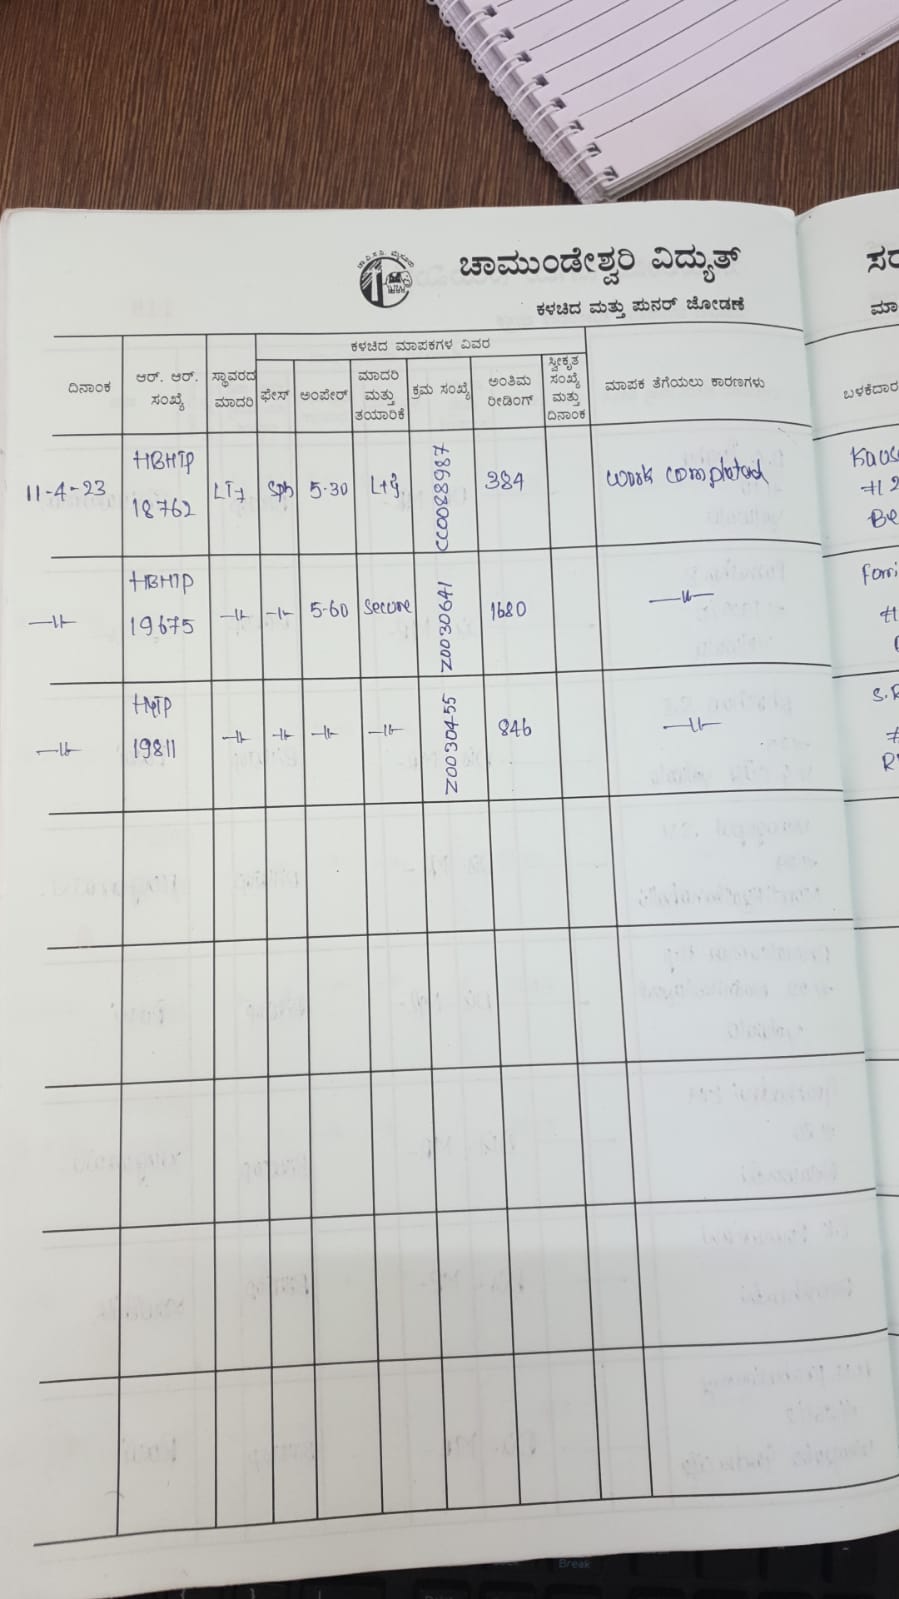 ಚಾಮುಂಡೇಶ್ವರಿ ವಿದ್ಯುತ್
ಕಳಚಿದ ಮತ್ತು ಪುನರ್ ಜೋಡಣೆ
ದಿನಾಂಕ
ಆರ್. ಆರ್. ಸಂಖ್ಯೆ
ಸ್ಥಾವರದ ಮಾದರಿ
ಕಳಚಿದ ಮಾಪಕಗಳ ವಿವರ
ಫೇಸ್
ಅಂಪೇರ್
ಮಾದರಿ ಮತ್ತು ತಯಾರಿಕೆ
ಕ್ರಮ ಸಂಖ್ಯೆ
ಅಂತಿಮ ರೀಡಿಂಗ್
ಸ್ವೀಕೃತ ಸಂಖ್ಯೆ ಮತ್ತು ದಿನಾಂಕ
ಮಾಪಕ ತೆಗೆಯಲು ಕಾರಣಗಳು
ಬಳಕೆದಾರ
11-4-23 HBHTP 18762 LT7 Sph 5-30 L+G CC0088987 384 work completed
HBHTP 19675 5-60 Secure Z0030641 1680
19811 Z0030455 846
S.R
Break